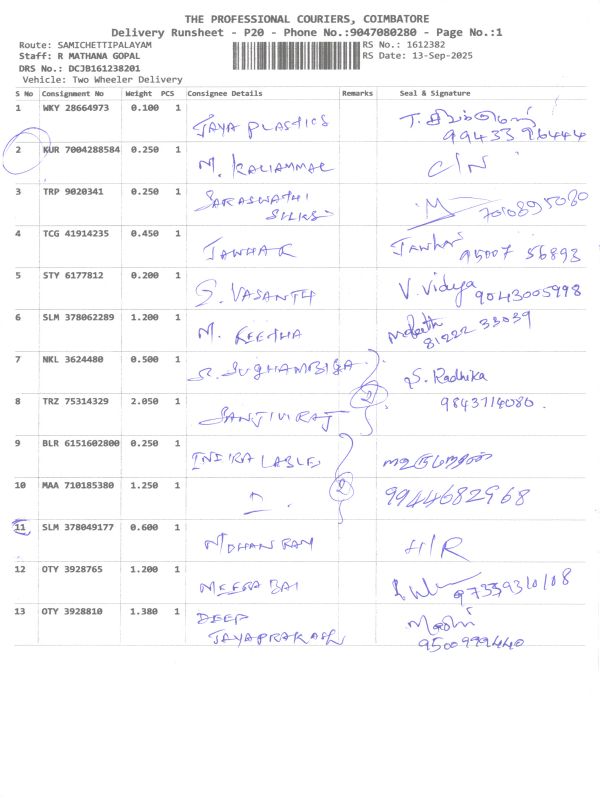 THE PROFESSIONAL COURIERS, COIMBATORE
Delivery Runsheet - P20 - Phone No.:9047080280 - Page No.:1
Route: SAMICHETTIPALAYAM
RS No.: 1612382
Staff: R MATHANA GOPAL
RS Date: 13-Sep-2025
DRS No.: DCJB161238201
Vehicle: Two Wheeler Delivery
S No Consignment No Weight PCS Consignee Details Remarks Seal & Signature
1 WKY 28664973 0.100 1 JAYA PLASTICS
99433 96444
2 KUR 7004288584 0.250 1 M. KALIAMMAL C/N
3 TRP 9020341 0.250 1 SARASWATHI
SILKS 7010895080
4 TCG 41914235 0.450 1 JAWHAR Jawhar
95007 56893
5 STY 6177812 0.200 1 S. VASANTH V. Vidya
9043005998
6 SLM 378062289 1.200 1 M. KEETHA
81222 33039
7 NKL 3624480 0.500 1 S. Radhika
8 TRZ 75314329 2.050 1 SANJIVIRAJ 2 9843714080.
9 BLR 6151602800 0.250 1 INDIRA LABLES
10 MAA 710185380 1.250 1 2 9944682968
11 SLM 378049177 0.600 1 M DHANRAM H/R
12 OTY 3928765 1.200 1 MEERA BAI
13 OTY 3928810 1.380 1 DEEP
JAYAPRAKASH 9500999440